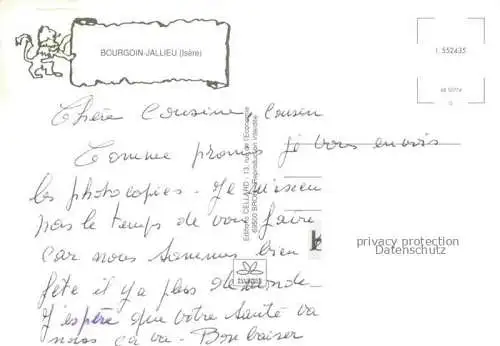 BOURGOIN-JALLIEU (Isère)
I. 552435
Chère Cousine Cousin
Comme promis je vous envois
les photocopies - Je
pas le temps de vous faire
car nous sommes bien
fête il y a plus de monde -
J'espère que votre santé va
nous ça va - Bon baiser
Editions CELLARD - 13, rue de l'Economie
69500 BRON - Reproduction interdite
privacy protection
Datenschutz